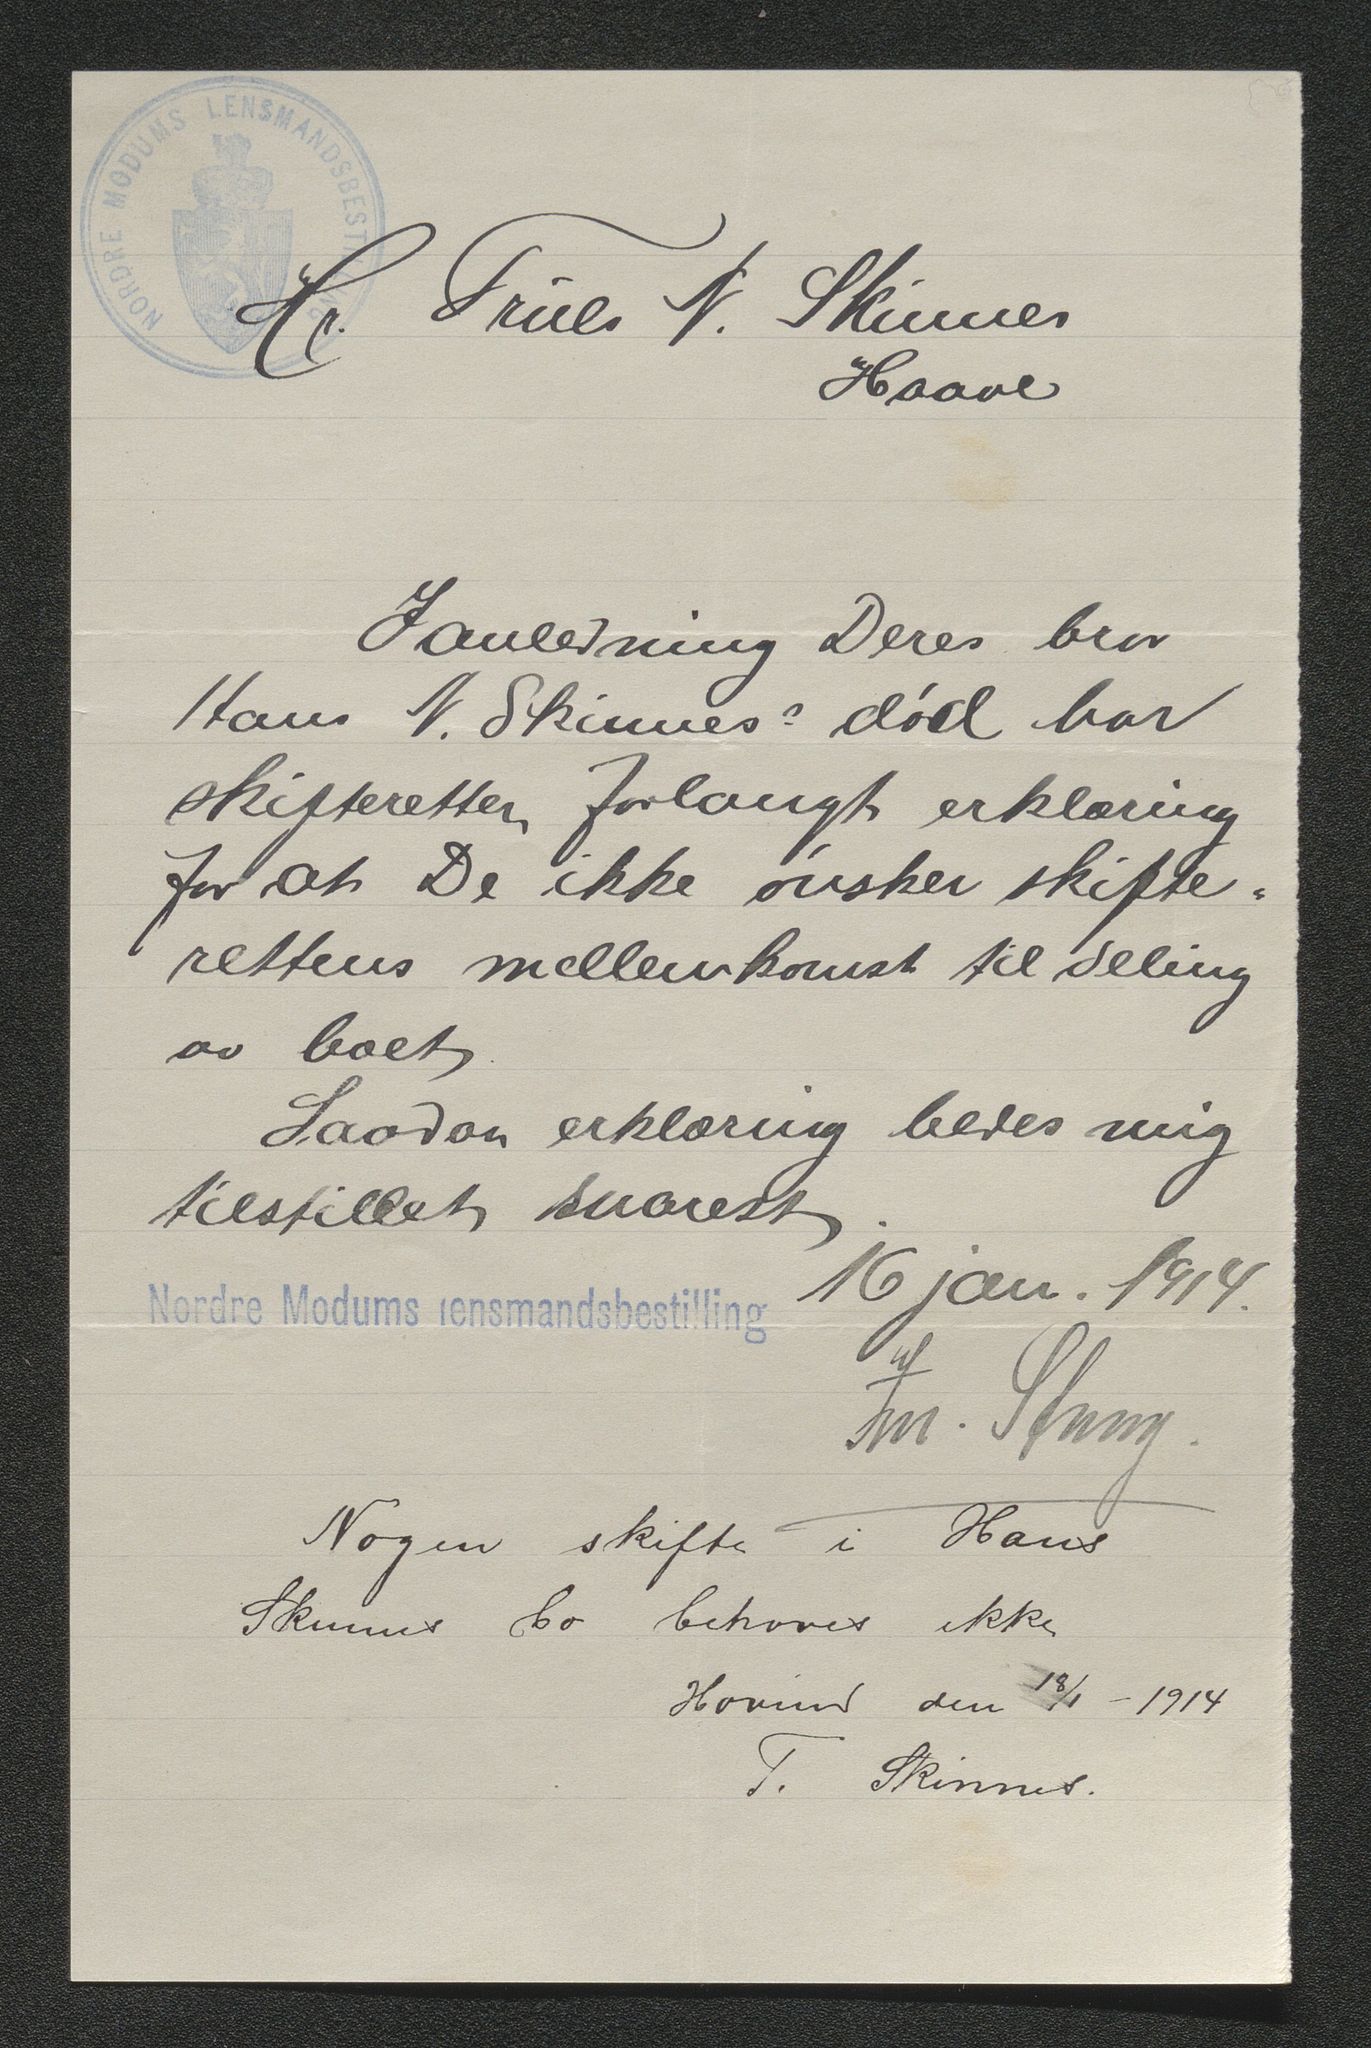 NORDRE MODUMS LENSMANDSBESTILLING
Hr. Trules N. Skinnes
Haave
I anledning Deres bror
Hans N. Skinnes' død har
skifteretten forlangt erklæring
for at De ikke ønsker skifte-
rettens mellemkomst til deling
av boet
Saadan erklæring bedes mig
tilstillet snarest.
16 jan. 1914.
Nordre Modums lensmandsbestilling
Nogen skifte i Hans
Skinnes bo behøves ikke
Hovind den 18/1 - 1914
T. Skinnes.